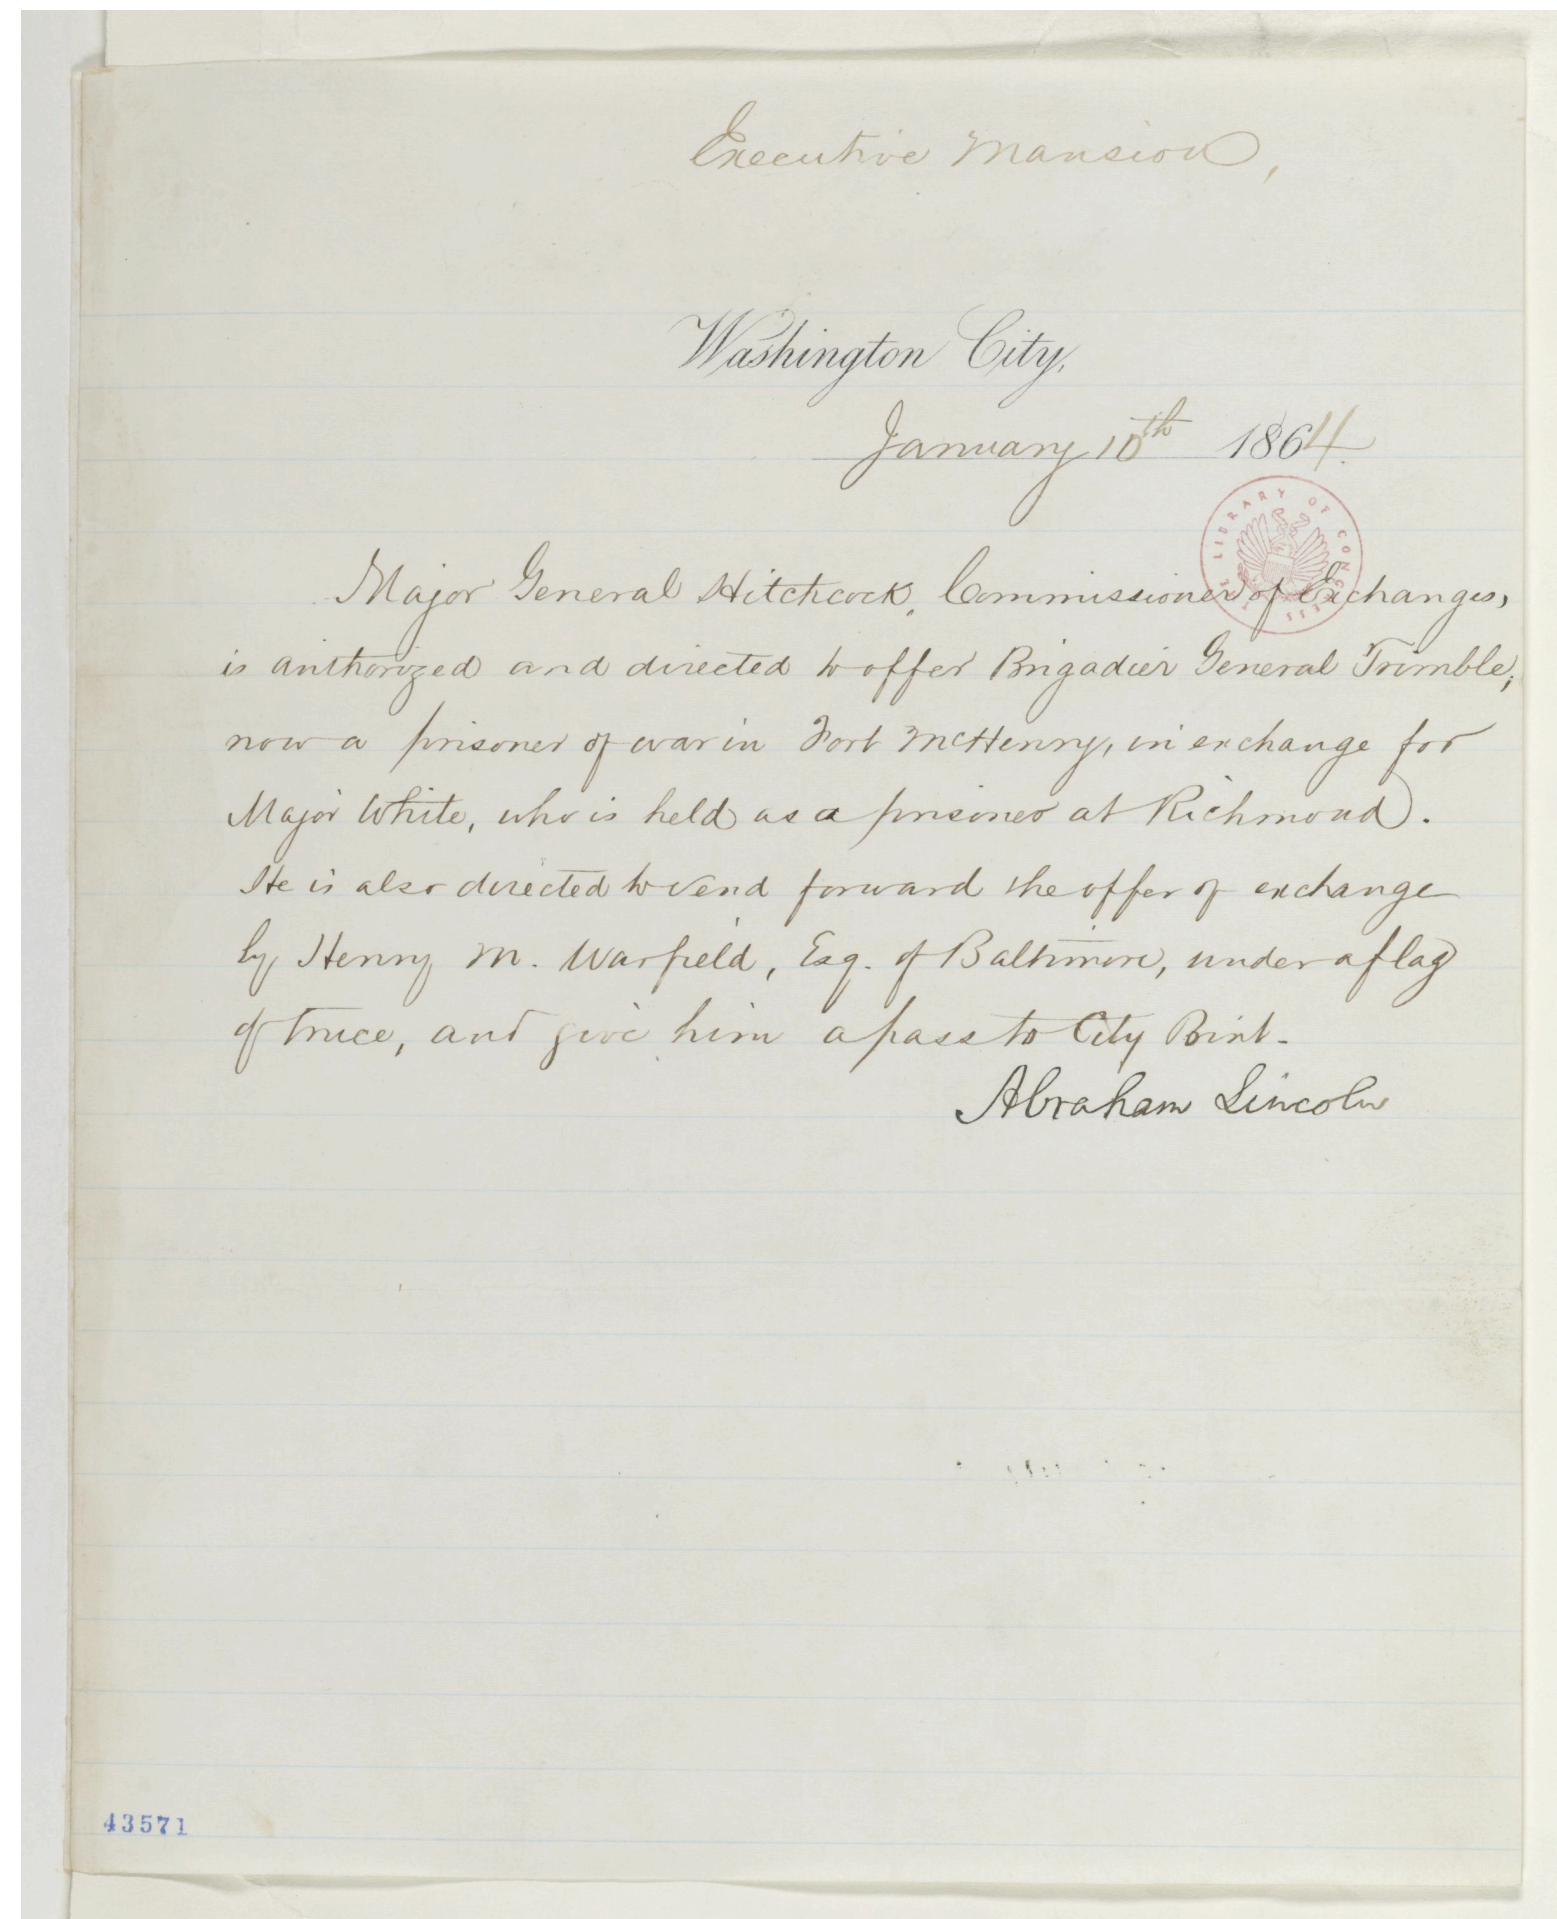 Executive Mansion,
Washington City,
January 10th 1864.
LIBRARY OF CONGRESS
Major General Hitchcock, Commissioner of Exchanges,
is authorized and directed to offer Brigadier General Trimble,
now a prisoner of war in Fort McHenry, in exchange for
Major White, who is held as a prisoner at Richmond.
He is also directed to send forward the offer of exchange
by Henry M. Warfield, Esq. of Baltimore, under a flag
of truce, and give him a pass to City Point.
Abraham Lincoln
43571